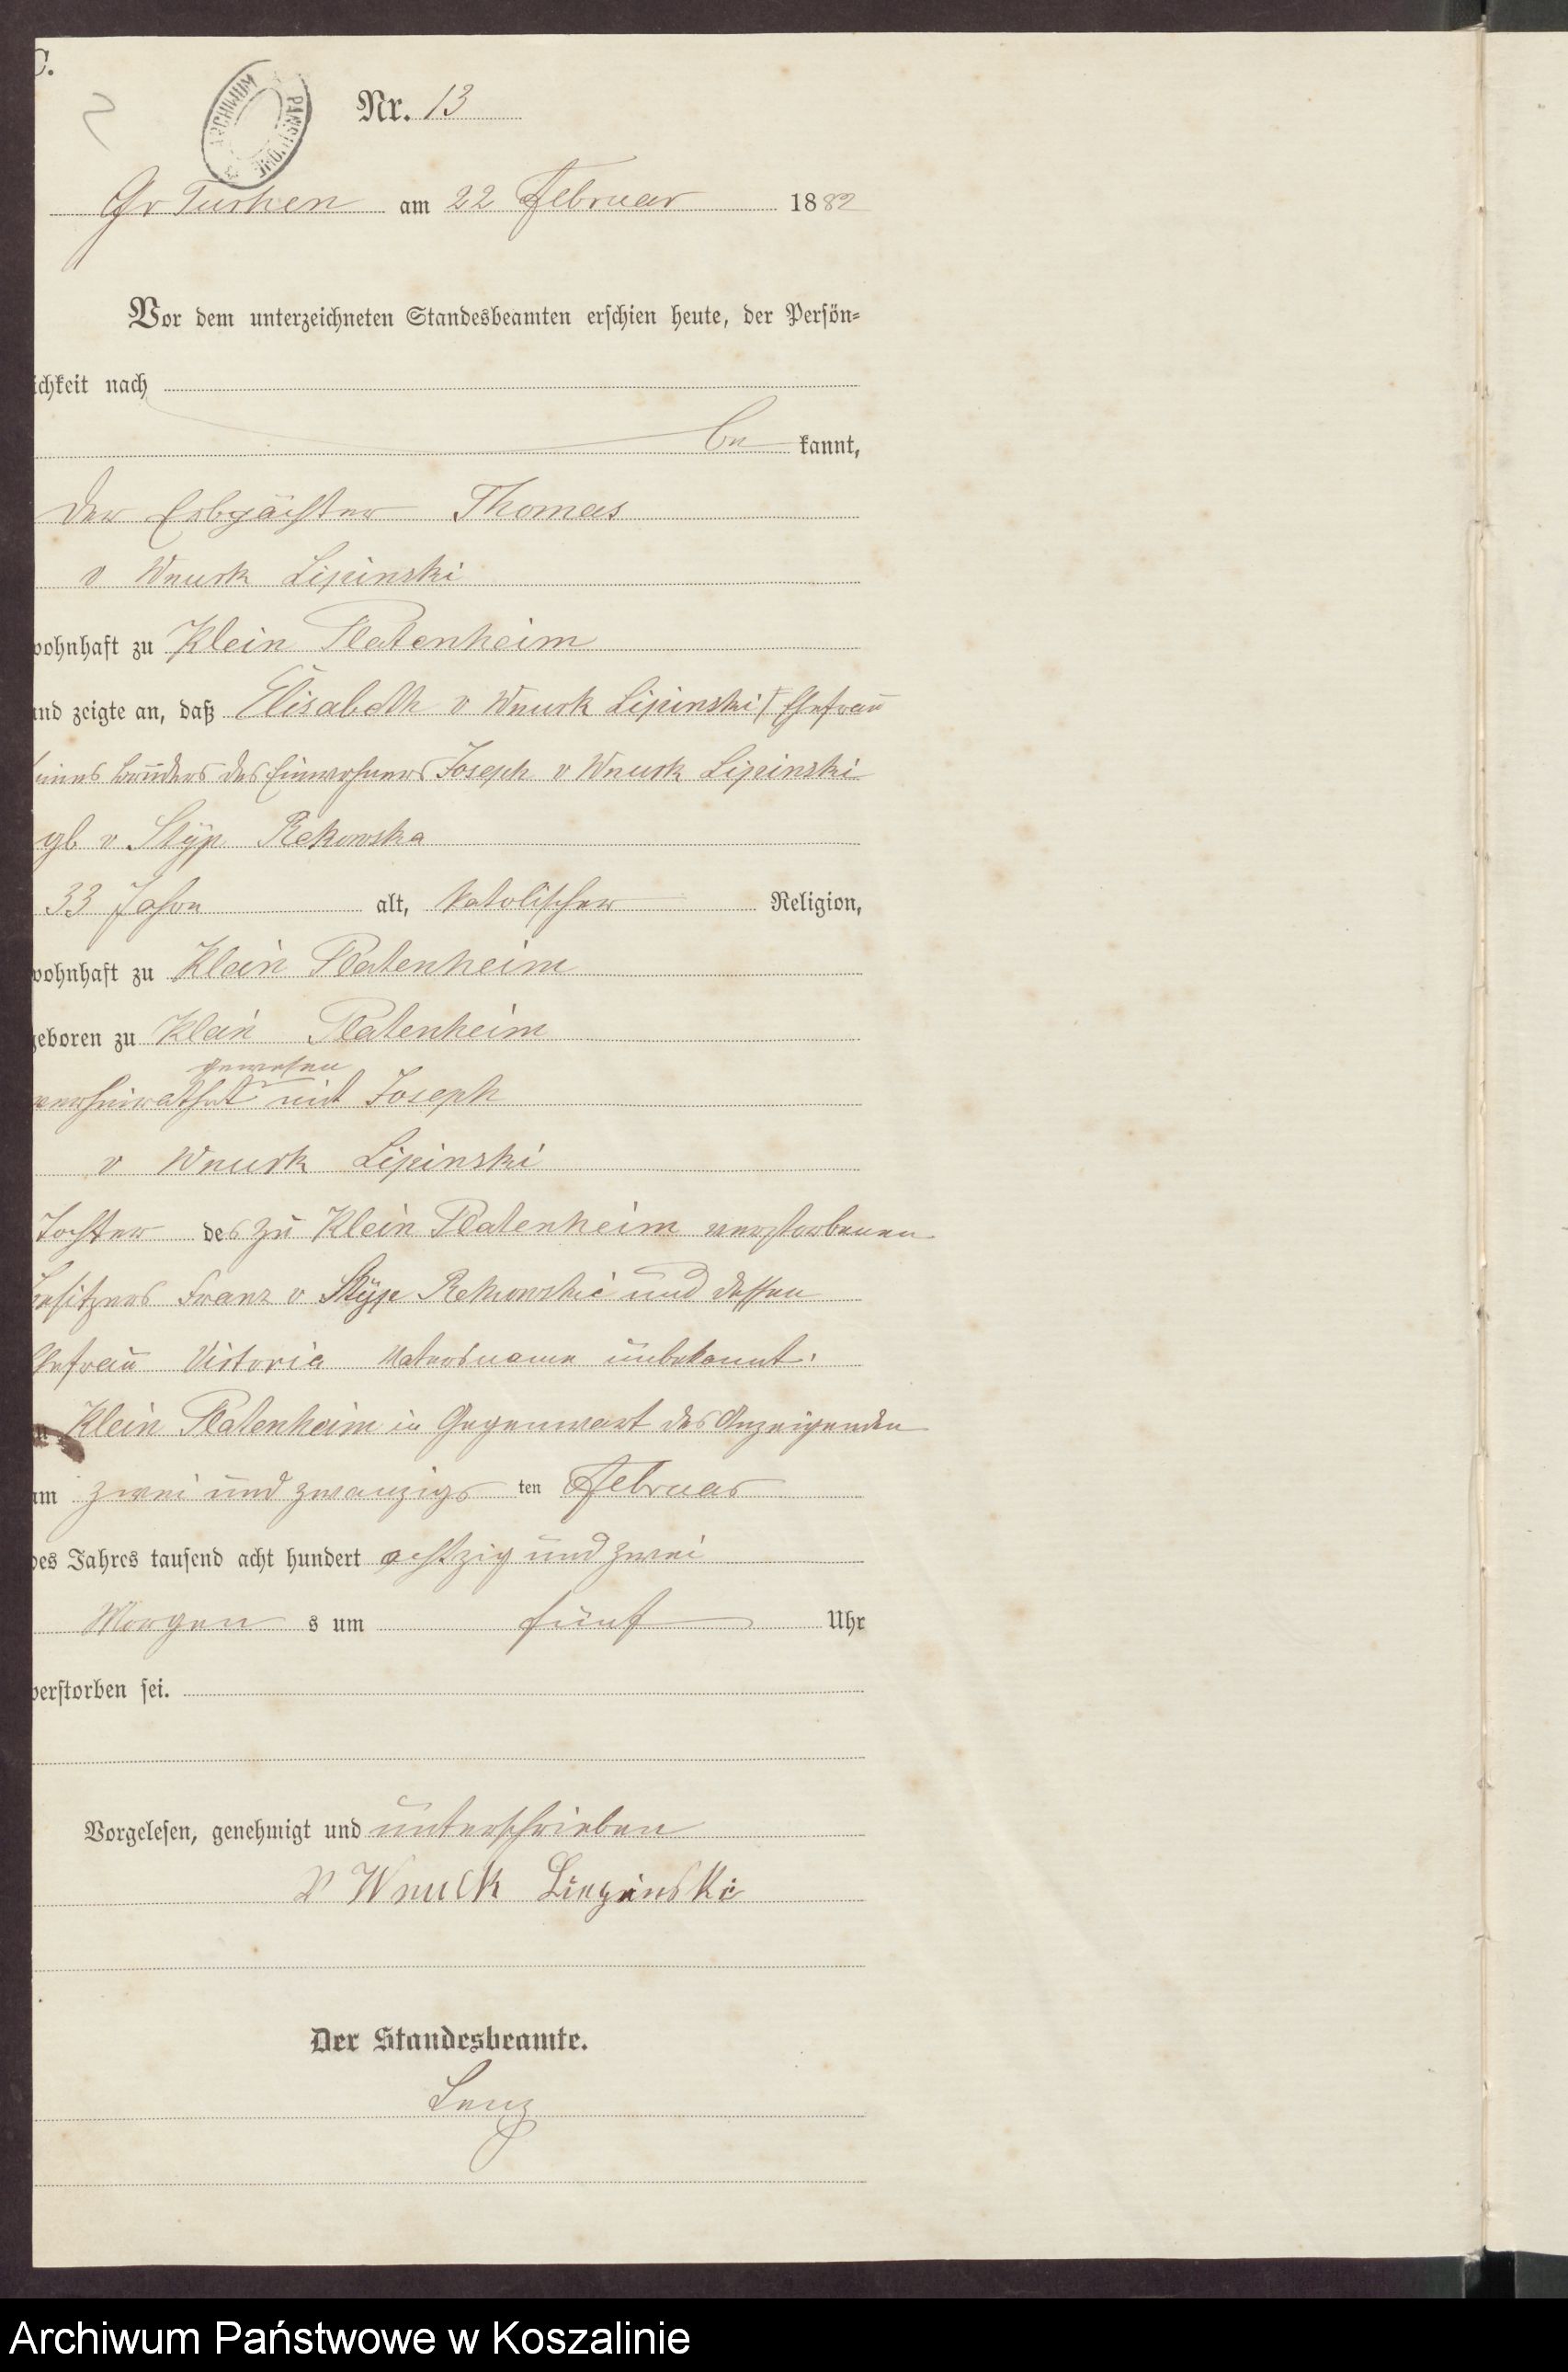 C.
ARCHIWUM PAŃSTWOWE
Nr. 13
Gr Tuchen am 22 Februar 1882
Vor dem unterzeichneten Standesbeamten erschien heute, der Persön-
ichkeit nach
be kannt,
der Erbpächter Thomas
v Wnuck Lipinski
wohnhaft zu Klein Platenheim
und zeigte an, daß Elisabeth v Wnuck Lipinski Ehefrau
seines Bruders des Einwohners Joseph v Wnuck Lipinski
gb v Styp Rekowska
33 Jahre alt, katolischer Religion,
wohnhaft zu Klein Platenheim
geboren zu Klein Platenheim
gewesen
verheirathet mit Joseph
v Wnuck Lipinski
Tochter des zu Klein Platenheim verstorbenen
Besitzers Franz v Styp Rekowski und dessen
Ehefrau Victoria Vatersname unbekannt.
Klein Platenheim in Gegenwart des Anzeigenden
am zwei und zwanzigs ten Februar
des Jahres tausend acht hundert achtzig und zwei
Morgen s um fünf Uhr
verstorben sei.
Vorgelesen, genehmigt und unterschrieben
v Wnuck Liepinski
Der Standesbeamte.
Lenz
Archiwum Państwowe w Koszalinie